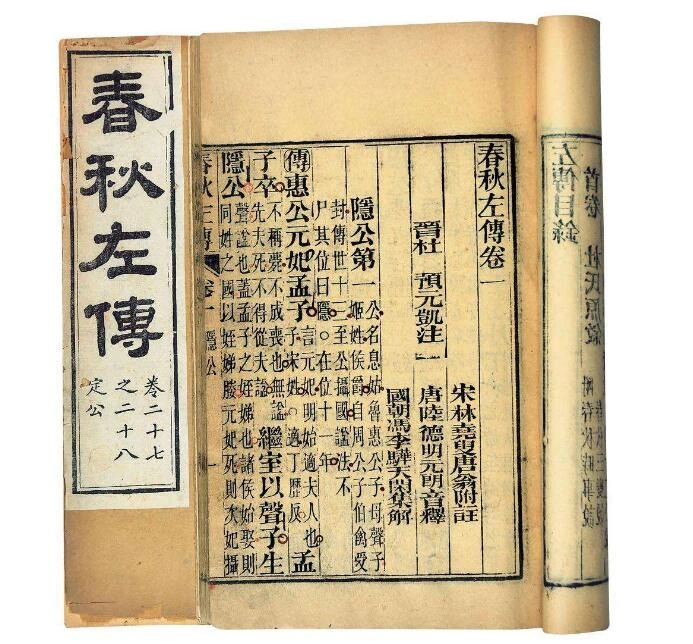 左傳目錄
首卷 杜氏原敘
春秋左傳卷一
晉杜 預元凱注
宋林堯叟唐翁附註
唐陸德明元朗音釋
國朝馮李驊天閑集解
隱公第一 公名息姑魯惠公子母聲子
姬姓侯爵自周公子伯禽受
封傳世十三至公攝國諡法不
尸其位曰隱在位十一年
傳惠公元妃孟子 言元妃明始適夫人也
子宋姓適丁歷反 孟
子卒 不稱薨不成喪也無諡
先夫死不得從夫諡 繼室以聲子生
隱公 聲諡也蓋孟子之姪娣也諸侯始娶則
同姓之國以姪娣媵元妃死則次妃攝
春秋左傳 卷一 隱公
春秋左傳
卷二十七
之二十八
定公